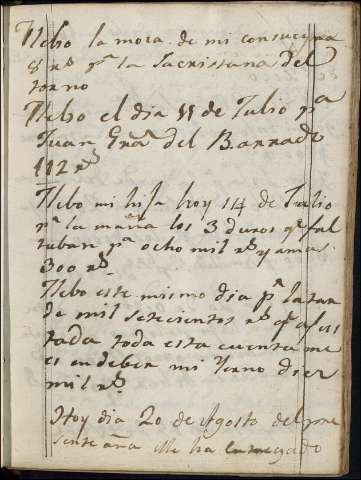 Llebo la moza de mi consuegra
8 rs pa la Sacristana del
torno
Llebo el dia 11 de Julio pa
Juan Erna del Barrado
112 rs
Llebo mi hija hoy 14 de Julio
pr la maña los 3 duros q fal
taban pa ocho mil rs y a mas
300 rs
Llebo este mismo dia pr la tar
de mil setecientos rs q ajus
tada toda esta cuenta me
es en deber mi Yerno diez
mil rs
Hoy dia 20 de Agosto del pre
sente año Me ha entregado